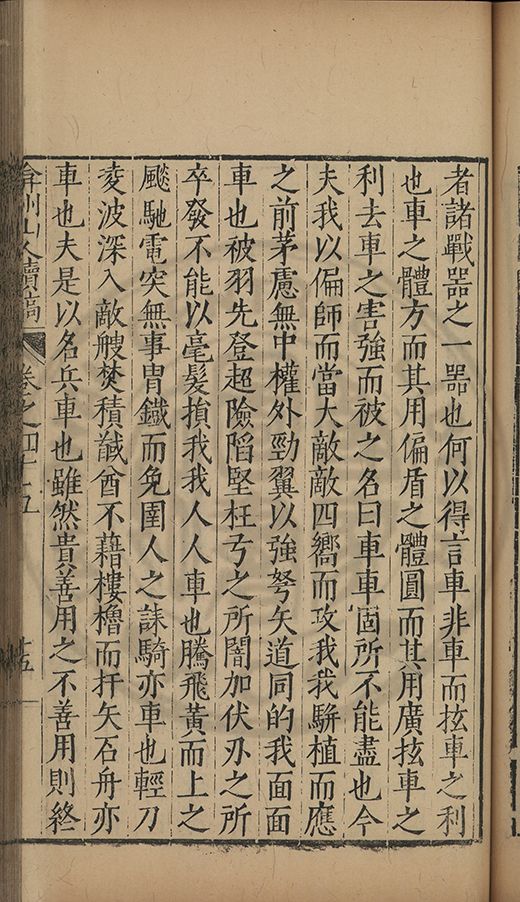 者諸戰器之一器也何以得言車非車而㧓車之利
也車之體方而其用偏盾之體圓而其用廣㧓車之
利去車之害強而被之名曰車車固所不能盡也今
夫我以偏師而當大敵敵四嚮而攻我我駢植而應
之前茅慮無中權外勁翼以強弩矢道同的我面面
車也被羽先登超險陷堅枉弓之所闇加伏刃之所
卒發不能以毫髮損我我人人車也騰飛黃而上之
飈馳電突無事冑鐵而免圉人之誅騎亦車也輕刀
凌波深入敵艘焚積馘酋不藉樓櫓而扞矢石舟亦
車也夫是以名兵車也雖然貴善用之不善用則終
弇州山人續稿 卷之四十五 十五